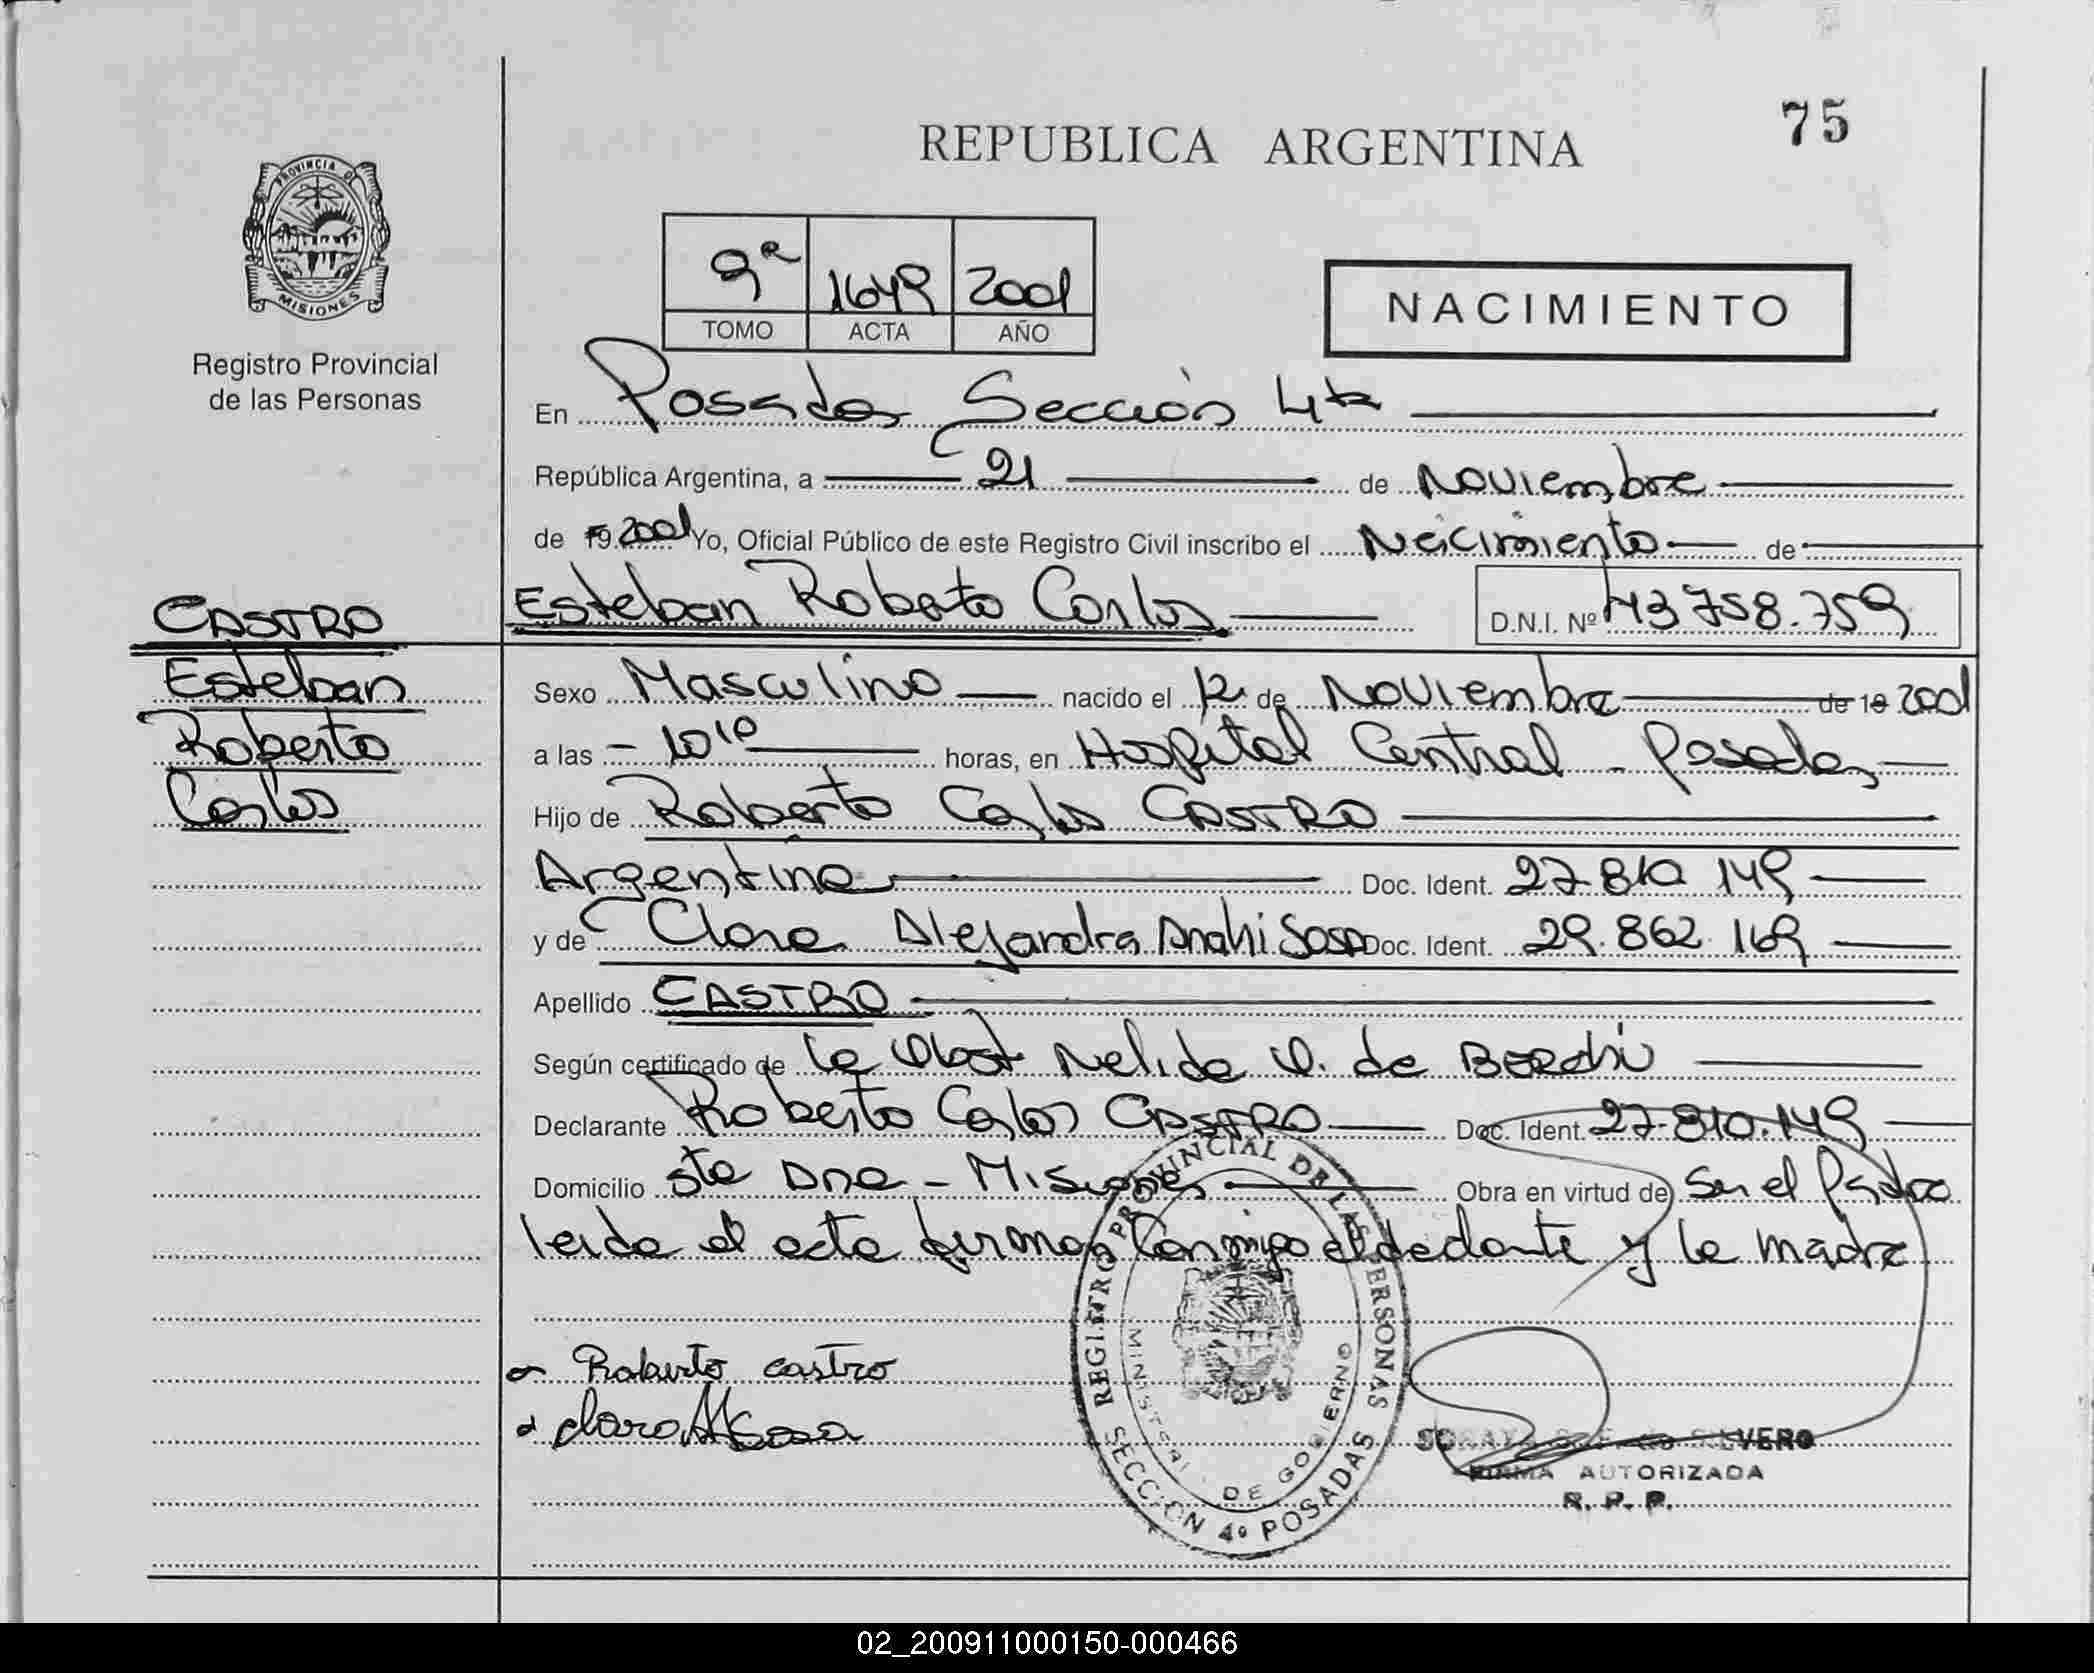 75
REPUBLICA ARGENTINA
PROVINCIA DE
MISIONES
Registro Provincial
de las Personas
9º 1649 2001
TOMO ACTA AÑO
NACIMIENTO
En Posadas Sección 4ta
República Argentina, a 21 de Noviembre
de 19 2001 Yo, Oficial Público de este Registro Civil inscribo el Nacimiento de
Esteban Roberto Carlos D.N.I. Nº 43758.759
CASTRO
Esteban
Roberto
Carlos
Sexo Masculino nacido el 12 de Noviembre de 19 2001
a las 10 10 horas, en Hospital Central - Posadas
Hijo de Roberto Carlos CASTRO
Argentina Doc. Ident. 27 810 149
y de Clara Alejandra Anahi Sosa Doc. Ident. 29.862.169
Apellido CASTRO
Según certificado de la Obst Nelida de
Declarante Roberto Carlos CASTRO Doc. Ident. 27.810.149
Domicilio Sta Ana - Misiones Obra en virtud de Ser el Padre
leida el acta firman Conmigo el y la madre
Roberto castro
Clara A Sosa
REGISTRO PROVINCIAL DE LAS PERSONAS
DE GOBIERNO
SECCION 4º POSADAS
FIRMA AUTORIZADA
R. P. P.
02_200911000150-000466